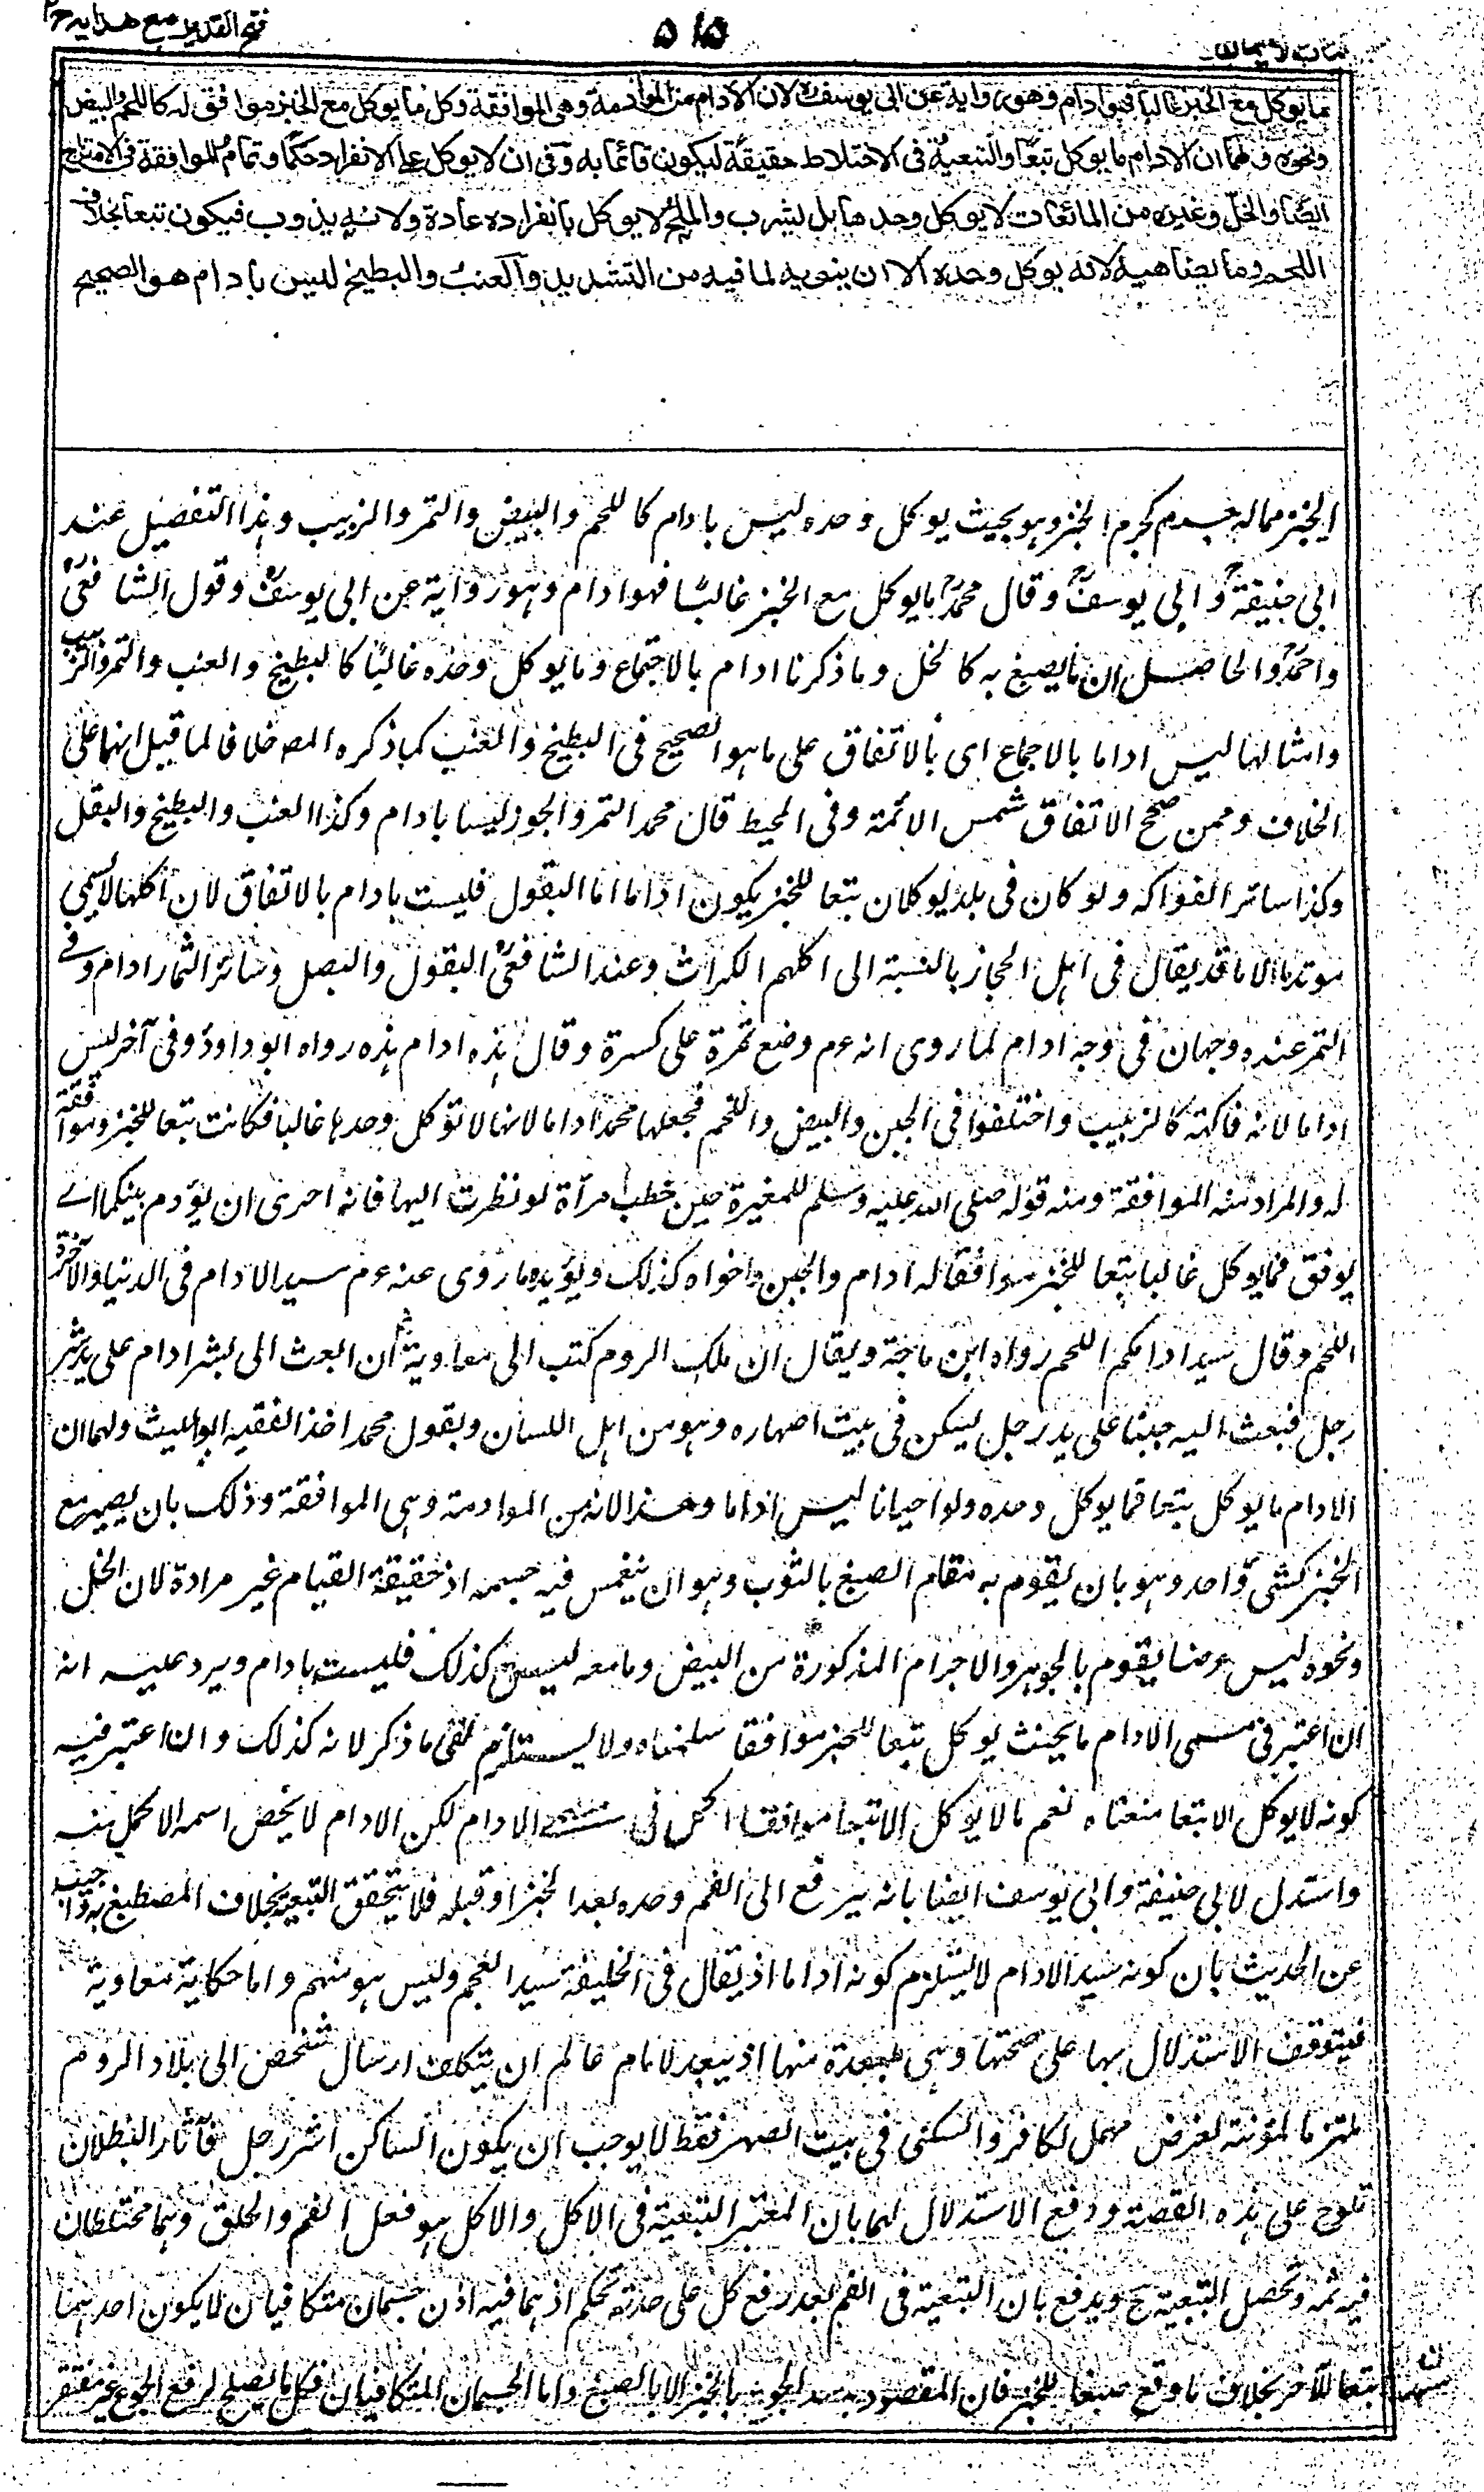 فتح القدير مع هدايه ج٢
٥١٥
كتاب الايمان
ما يوكل مع الخبز غالبا فهو ادام وهو رواية عن ابى يوسف رح لان الادام من الموادمة وهى الموافقة وكل ما يوكل مع الخبز موافق له كاللحم والبيض
ونحوه ولهما ان الادام ما يوكل تبعًا والتبعية فى الاختلاط حقيقة ليكون قائما به وفى ان لا يوكل على الانفراد حكمًا وتمام الموافقة فى الامتزاج
ايضًا والخل وغيره من المائعات لا يوكل وحدها بل يشرب والملح لا يوكل بانفراده عادة ولانه يذوب فيكون تبعا بخلاف
اللحم وما يضاهيه لانه يوكل وحده الا ان ينويه لما فيه من التشديد والعنب والبطيخ ليس بادام هو الصحيح
الخبز مما له جرم كجرم الخبز وهو بحيث يوكل وحده ليس بادام كاللحم والبيض والتمر والزبيب وهذا التفصيل عند
ابى حنيفةؒ وابى يوسفؒ وقال محمدؒ ما يوكل مع الخبز غالبًا فهو ادام وهو رواية عن ابى يوسفؒ وقول الشافعىؒ
واحمدؒ والحاصل ان ما يصبغ به كالخل وما ذكرنا ادام بالاجماع وما يوكل وحده غالبًا كالبطيخ والعنب والتمر والزبيب
وامثالها ليس اداما بالاجماع اى بالاتفاق على ما هو الصحيح فى البطيخ والعنب كما ذكره المص خلافا لما قيل انهما على
الخلاف وممن صحح الاتفاق شمس الائمة وفى المحيط قال محمد التمر والجوز ليسا بادام وكذا العنب والبطيخ والبقل
وكذا سائر الفواكه ولو كان فى بلد يوكلان تبعا للخبز يكون اداما اما البقول فليست بادام بالاتفاق لان آكلها لا يسمى
موتدما الا ما قد يقال فى اهل الحجاز بالنسبة الى اكلهم الكراث وعند الشافعىؒ البقول والبصل وسائر الثمار ادام وفى
التمر عنده وجهان فى وجه ادام لما روى انه عم وضع تمرة على كسرة وقال هذه ادام هذه رواه ابو داودؒ وفى آخر ليس
اداما لانه فاكهة كالزبيب واختلفوا فى الجبن والبيض واللحم فجعلها محمدؒ اداما لانها لا توكل وحدها غالبا فكانت تبعا للخبز وموافقة
له والمراد منه الموافقة ومنه قوله صلى الله عليه وسلم للمغيرة حين خطب امرأة لو نظرت اليها فانه احرى ان يؤدم بينكما اى
يوفق فما يوكل غالبا تبعا للخبز موافقا له ادام والجبن واخواه كذلك ويؤيده ما روى عنه عم سيد الادام فى الدنيا والآخرة
اللحم وقال سيد ادامكم اللحم رواه ابن ماجة ويقال ان ملك الروم كتب الى معاوية ان ابعث الى بشر ادام على يد شر
رجل فبعث اليه جبنا على يد رجل يسكن فى بيت اصهاره وهو من اهل اللسان وبقول محمد اخذ الفقيه ابو الليث ولهما ان
الادام ما يوكل تبعا فما يوكل وحده ولو احيانا ليس اداما وهذا لانه من الموادمة وهى الموافقة وذلك بان يصير مع
الخبز كشئ واحد وهو بان يقوم به مقام الصبغ بالثوب وهو ان ينغمس فيه جسمه اذ حقيقة القيام غير مرادة لان الخل
ونحوه ليس عرضا يقوم بالجوهر والاجرام المذكورة من البيض وما معه ليس كذلك فليست بادام ويرد عليه انه
ان اعتبر فى مسمى الادام ما بحيث يوكل تبعا للخبز موافقا سلمناه ولا يستلزم نفى ما ذكر لانه كذلك وان اعتبر فيه
كونه لا يوكل الا تبعا منعناه نعم ما لا يوكل الا تبعا موافقا اكمل فى مسمى الادام لكن الادام لا يخص اسمه الاكمل منه
واستدل لابى حنيفة وابى يوسف ايضا بانه يرفع الى الفم وحده بعد الخبز او قبله فلا يتحقق التبعية بخلاف المصطبغ به واجيب
عن الحديث بان كونه سيد الادام لا يستلزم كونه اداما اذ يقال فى الخليفة سيد العجم وليس هو منهم واما حكاية معاوية
فيتوقف الاستدلال بها على صحتها وهى بعيدة منها اذ يبعد لامام عالم ان يتكلف ارسال شخص الى بلاد الروم
ملتزما لمؤنته لغرض مهمل لكافر والسكنى فى بيت الصهر فقط لا يوجب ان يكون الساكن اشر رجل فآثار البطلان
تلوح على هذه القصة ودفع الاستدلال لهما بان المعتبر التبعية فى الاكل والاكل هو فعل الفم والحلق وهما مختلطان
فيه ثمه وتحصل التبعية ح ويدفع بان التبعية فى الفم بعد رفع كل على حدته تحكم اذ هما فيه اذن جسمان متكافيان لا يكون احدهما
تبعا للآخر بخلاف ما وقع صبغا للخبز فان المقصود بسد الجوع بالخبز لا بالصبغ واما الجسمان المتكافيان فكل ما يصلح لرفع الجوع غير مفتقر